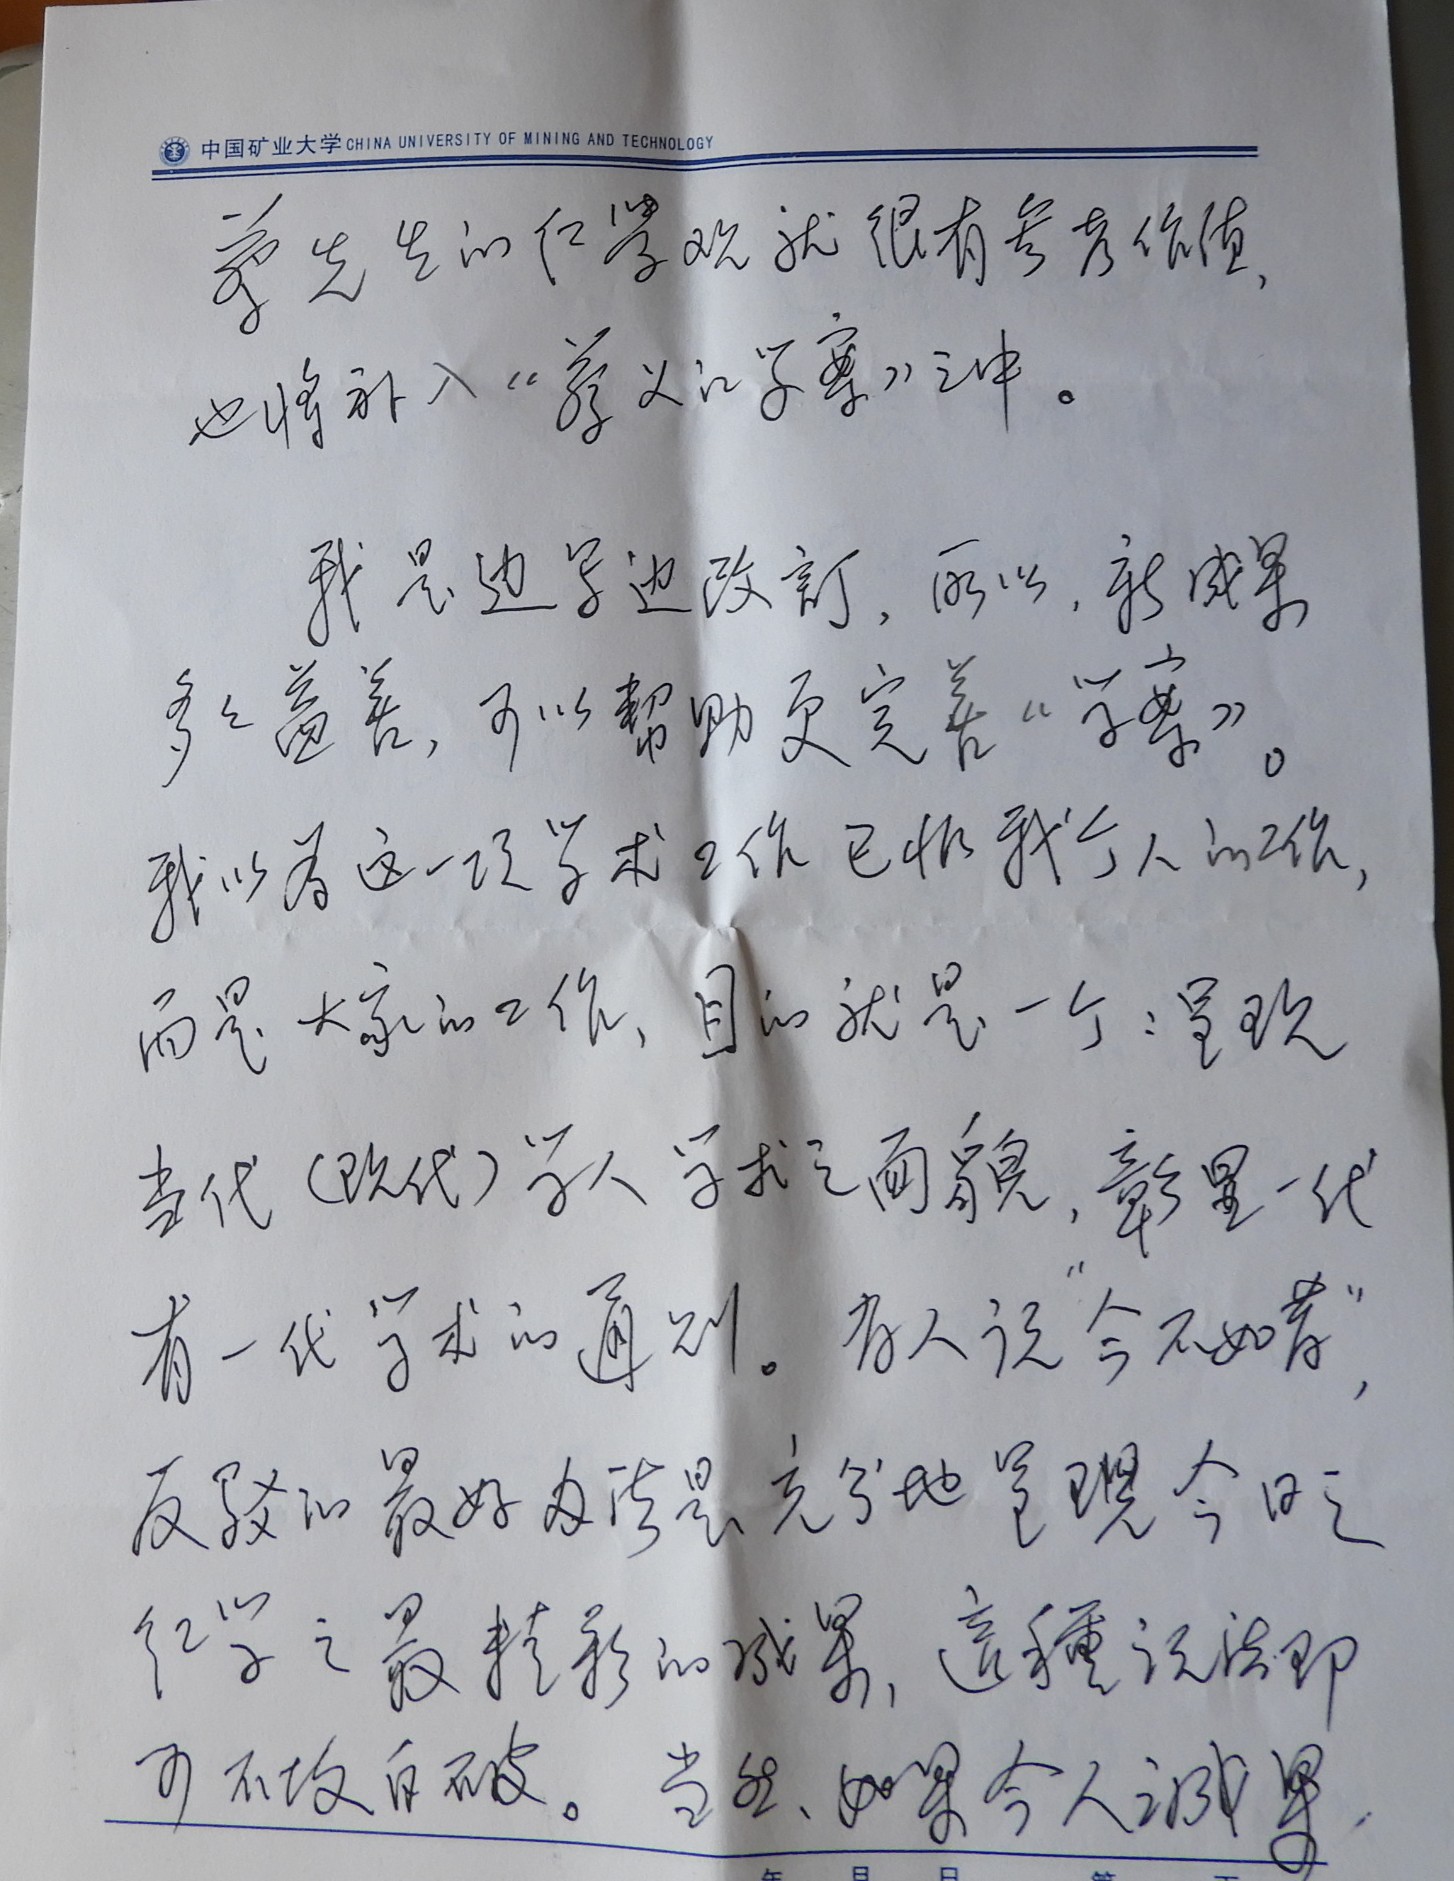 中国矿业大学 CHINA UNIVERSITY OF MINING AND TECHNOLOGY
蔡先生的红学观就很有参考价值，
也将补入“蔡义江学案”之中。
我是边写边改訂，所以，新成果
多多益善，可以幫助更完善“学案”。
我以为这一项学术工作已非我个人的工作，
而是大家的工作，目的就是一个：呈现
当代（现代）学人学术之面貌，彰显一代
有一代学术的通则。有人说“今不如昔”，
反驳的最好办法是充分地呈現今日之
红学之最精彩的成果，這種说法即
可不攻自破。当然、如果今人之成果，
年 月 日 第 页